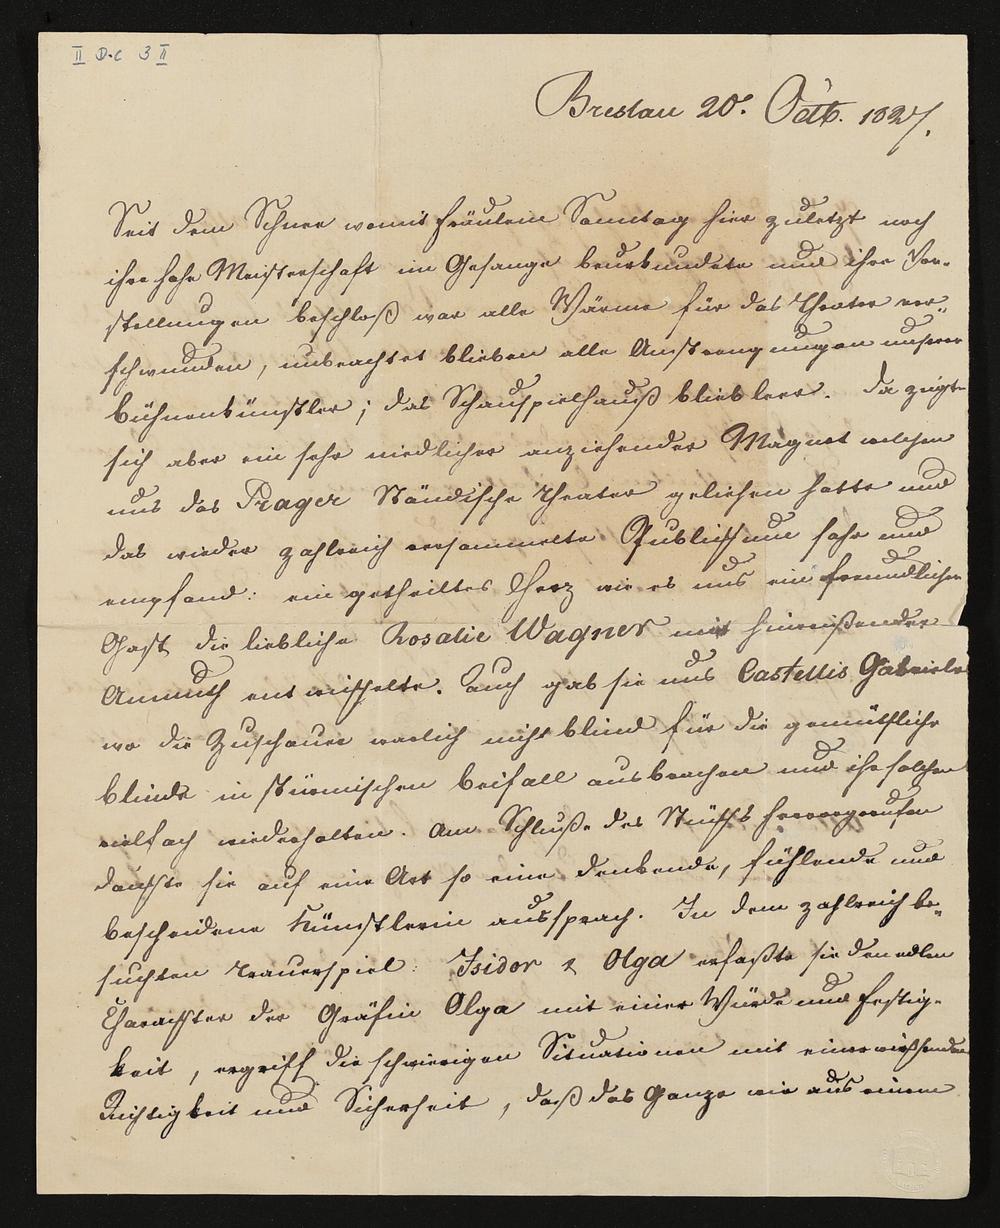 II D.c 3 II
Breslau 20. Octb. 1827.
Seit dem Schnee womit Fräulein Sonntag hier zuletzt noch
ihre hohe Meisterschaft im Gesange beurkundete und ihre Vor-
stellungen beschloß war alle Wärme für das Theater ver-
schwunden, unbeachtet blieben alle Anstrengungen unserer
Bühnenkünstler; das Schauspielhauß blieb leer. Da zeigte
sich aber ein sehr niedlicher anziehender Magnet welchen
uns das Prager Ständische Theater geliehen hatte und
das wieder zahlreich versammelte Publickum sah und
empfand: ein getheiltes Herz wie es uns ein freundlicher
Gast die liebliche Rosalie Wagner mit hinreißender
Anmuth entwickelte. Auch gab sie uns Castellis Gabriele
wo die Zuschauer warlich nicht blind für die gemüthliche
blinde in stürmischen Beifall ausbrachen und ihr solchen
vielfach wiederholten. Am Schluße des Stücks hervorgerufen
dankte sie auf eine Art so eine denkende, fühlende und
bescheidene Künstlerin aussprach. In dem zahlreich be-
suchten Trauerspiel: Isidor & Olga erfaßte sie den edlen
Charackter der Gräfin Olga mit einer Würde und Festig-
keit, ergriff die schwierigen Situationen mit einer wirkenden
Richtigkeit und Sicherheit, daß das Ganze wie aus einem